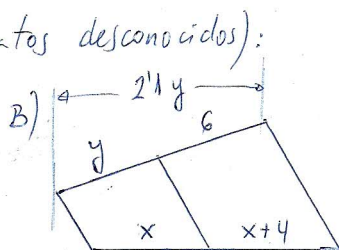 tos desconocidos):
B)
2'1 y
6
y
x
x+4